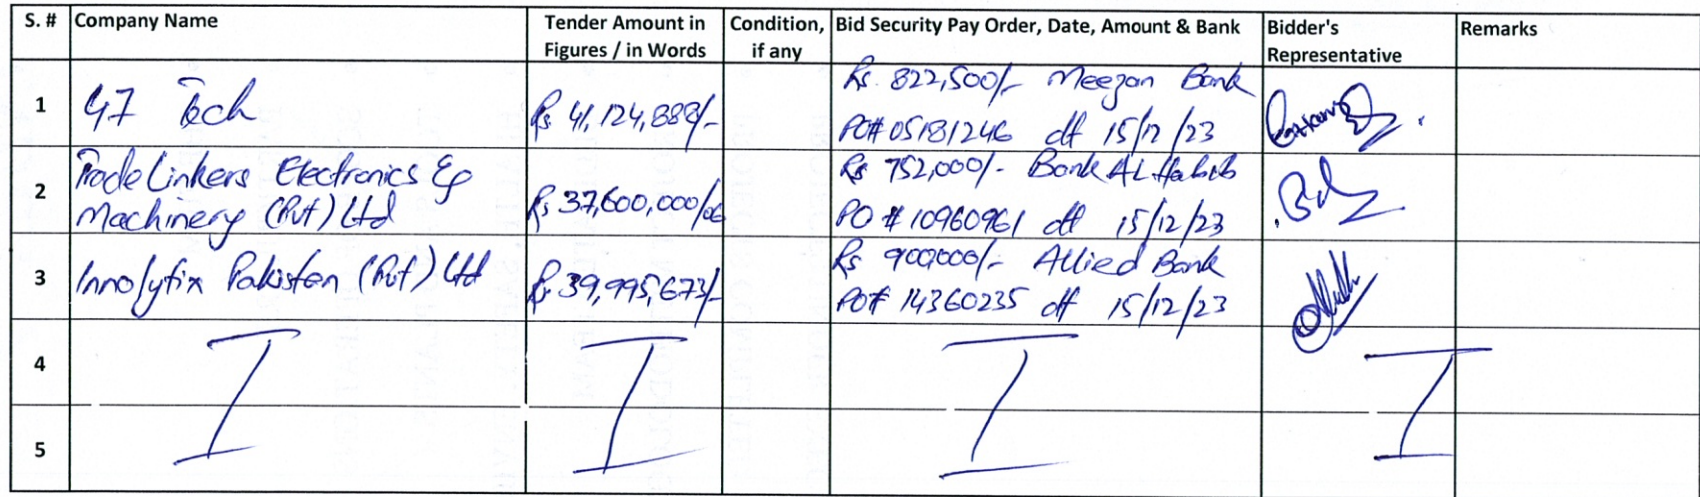 S. # Company Name Tender Amount in Figures / in Words Condition, if any Bid Security Pay Order, Date, Amount & Bank Bidder's Representative Remarks
1 G7 Tech Rs 41,124,888/- Rs. 822,500/- Meezan Bank
PO# 05181246 dt 15/12/23
2 TradeLinkers Electronics & Rs 37,600,000/00 Rs 752,000/- Bank AL Habib
Machinery (Pvt) Ltd PO # 10960961 dt 15/12/23
3 Innolytix Pakistan (Pvt) Ltd Rs 39,995,673/- Rs 900,000/- Allied Bank
PO# 14360235 dt 15/12/23
4
5